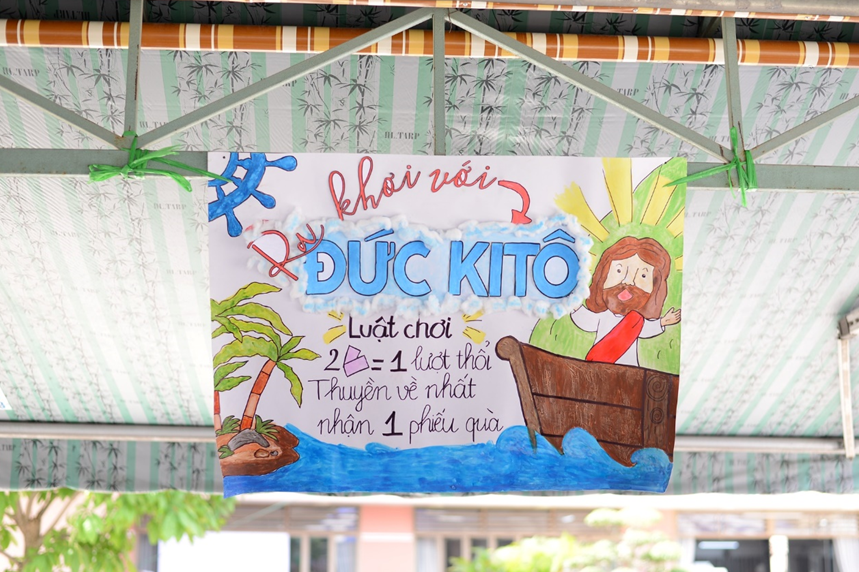 Ra khơi với
ĐỨC KITÔ
Luật chơi
2 = 1 lượt thổi
Thuyền về nhất
nhận 1 phiếu quà
HL TARP
HL TARP
HL TARP